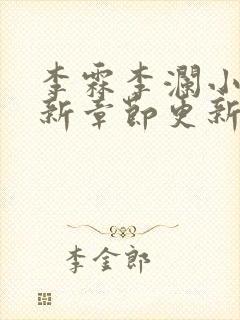 李霖李澜小
新章即更新
李金郎